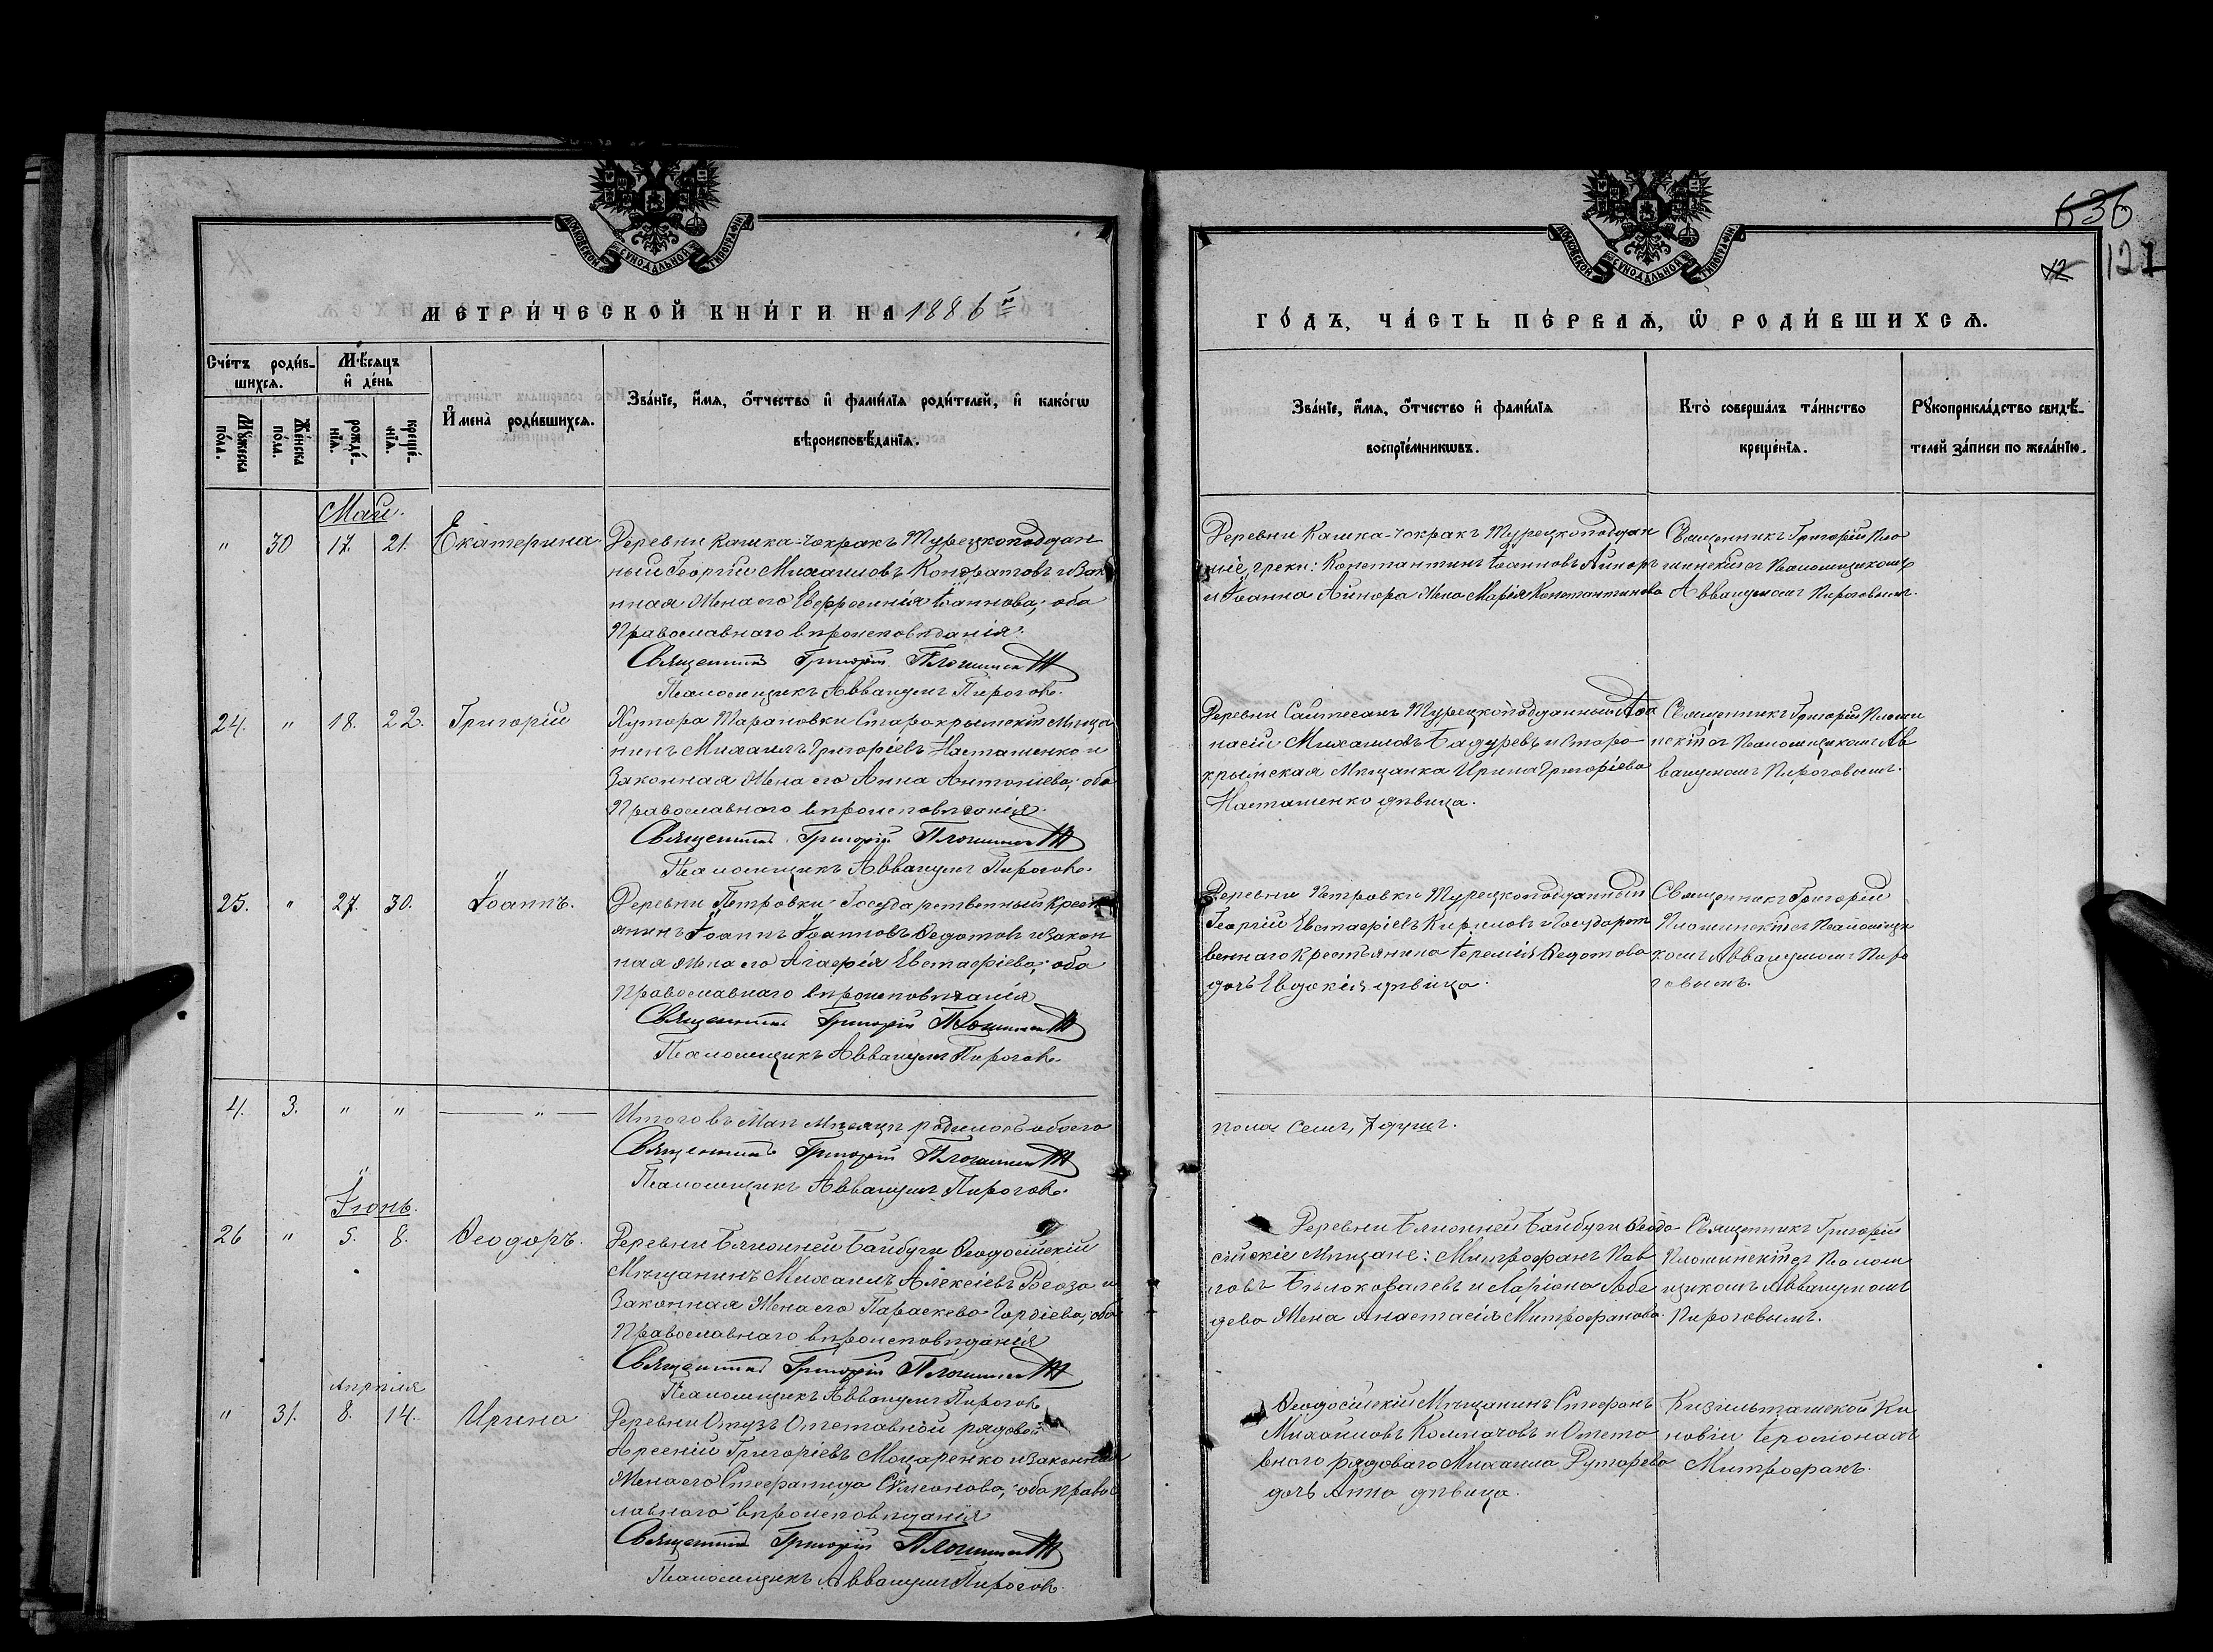 МОСКОВСКОЙ СУНОДАЛЬНОЙ ТИПОГРАФІИ
МЕТРИ́ЧЕСКОЙ КНИ́ГИ НА 1886 й
Сче́тъ роди́в-
шихсѧ.
Мѣ́сѧцъ
и҆ де́нь
Мꙋ́жеска
по́ла.
Же́нска
по́ла.
рожде́-
нїѧ.
креще́-
нїѧ.
И҆мена̀ роди́вшихсѧ.
Зва́нїе, и҆́мѧ, ѻ҆́тчество и҆ фами́лїѧ роди́телей, и҆ како́гѡ
вѣроисповѣ́данїѧ.
Май.
" 30 17. 21. Екатерина.
Деревни Кашка-чокракъ Турецкоподдан
ный Георгій Михаиловъ Кондратовъ и Закон
ная жена его Евфросинія Іоаннова; оба
Православнаго вѣроисповѣданія.
Священникъ Григорій
Псаломщикъ Аввакумъ Пироговъ.
24. " 18. 22. Григорій
Хутора Тарановки Старокрымскій Мѣща
нинъ Михаилъ Григоріевъ Насташенко и
Законная жена его Анна Антоніева; оба
Православнаго вѣроисповѣданія.
Священникъ Григорій
Псаломщикъ Аввакумъ Пироговъ.
25. " 27. 30. Іоаннъ.
Деревни Петровки Государственный Кресть
янинъ Іоаннъ Іоанновъ Ѳедотовъ и Закон
ная жена его Агафія Евстафіева; оба
Православнаго вѣроисповѣданія
Священникъ Григорій
Псаломщикъ Аввакумъ Пироговъ.
4. 3. " " — " —
Итого въ Маѣ мѣсяцѣ родилось обоего
Священникъ Григорій
Псаломщикъ Аввакумъ Пироговъ.
Іюнь.
26 " 5. 8. Ѳеодоръ.
Деревни Ближней Байбуги Ѳеодосійскій
Мѣщанинъ Михаилъ Алексіевъ и
Законная жена его Параскева Гордіева; оба
Православнаго вѣроисповѣданія
Священникъ Григорій
Псаломщикъ Аввакумъ Пироговъ
Апрѣля
" 31. 8. 14. Ирина
Деревни Отузъ Отставной рядовой
Арсеній Григоріевъ и законная
Жена его Стефанида Симеонова; оба право
славнаго вѣроисповѣданія
Священникъ Григорій
Псаломщикъ Аввакумъ Пироговъ.
636
12
121
МОСКОВСКОЙ СУНОДАЛЬНОЙ ТИПОГРАФІИ
ГО́ДЪ, ЧА́СТЬ ПЕ́РВАѦ, Ѡ҆ РОДИ́ВШИХСѦ.
Зва́нїе, и҆́мѧ, ѻ҆́тчество и҆ фами́лїѧ
воспрїе́мникѡвъ.
Кто̀ соверша́лъ та́инство
креще́нїѧ.
Рꙋкоприкла́дство свидѣ́-
телей за́писи по жела́нїю.
Деревни Кашка-чокракъ Турецкоподдан
ніе, греки: Константинъ Іоанновъ Айноръ
и Іоанна Айнора жена Марія Константинова
Священникъ Григорій Пло
шинскій съ Псаломщикомъ
Аввакумомъ Пироговымъ.
Деревни Турецкоподданный Аѳа
насій Михаиловъ и Старо-
крымская Мѣщанка Ирина Григоріева
Насташенко дѣвица.
Священникъ Григорій Плоши
нскій съ Псаломщикомъ Ав
вакумомъ Пироговымъ.
Деревни Петровки Турецкоподданный
Георгій Евстафіевъ Кириловъ и Государст
веннаго Крестьянина Іеремія Ѳедотова
дочь Евдокія дѣвица.
Священникъ Григорій
Плошинскій съ Псаломщи
комъ Аввакумомъ Пиро
говымъ.
пола семь, 7 душъ.
Деревни Ближней Байбуги Ѳеодо-
сійскіе Мѣщане: Митрофанъ Пав
ловъ Бѣлоковалевъ и Ларіона Лебе
дева жена Анастасія Митрофанова.
Священникъ Григорій
Плошинскій съ Псалом
щикомъ Аввакумомъ
Пироговымъ.
Ѳеодосійскій Мѣщанинъ Стефанъ
Михаиловъ и Отста
внаго рядоваго Михаила
дочь Анна дѣвица.
Кизильташской Ки
новіи Іеромонахъ
Митрофанъ.